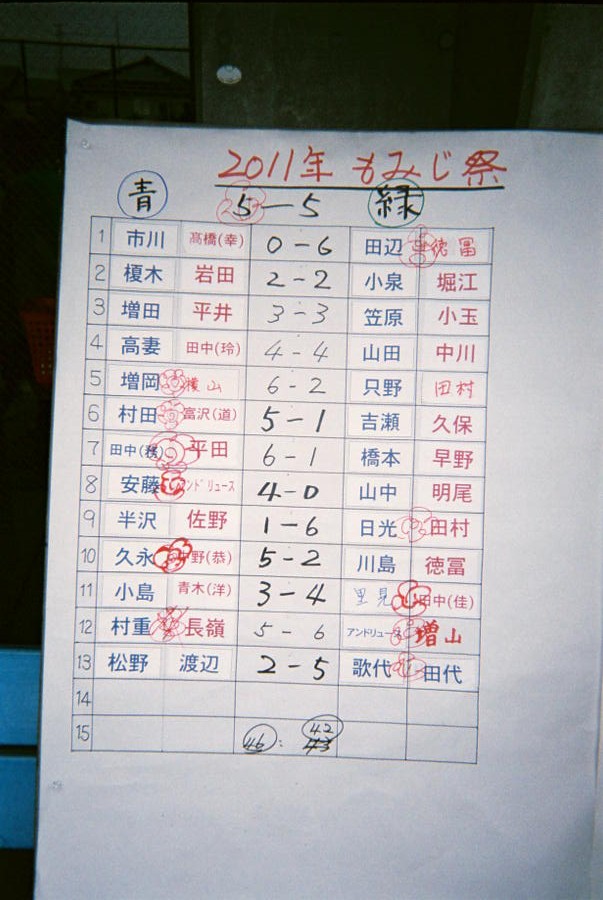 2011年 もみじ祭
青 5-5 緑
1 市川 髙橋(幸) 0-6 田辺 徳冨
2 榎木 岩田 2-2 小泉 堀江
3 増田 平井 3-3 笠原 小玉
4 高妻 田中(玲) 4-4 山田 中川
5 増岡 横山 6-2 只野 田村
6 村田 富沢(道) 5-1 吉瀬 久保
7 田中(稔) 平田 6-1 橋本 早野
8 安藤 アンドリュース 4-0 山中 明尾
9 半沢 佐野 1-6 日光 田村
10 久永 中野(恭) 5-2 川島 徳冨
11 小島 青木(洋) 3-4 里見 田中(佳)
12 村重 長嶺 5-6 アンドリュース 増山
13 松野 渡辺 2-5 歌代 田代
14
15 46 : 42 43